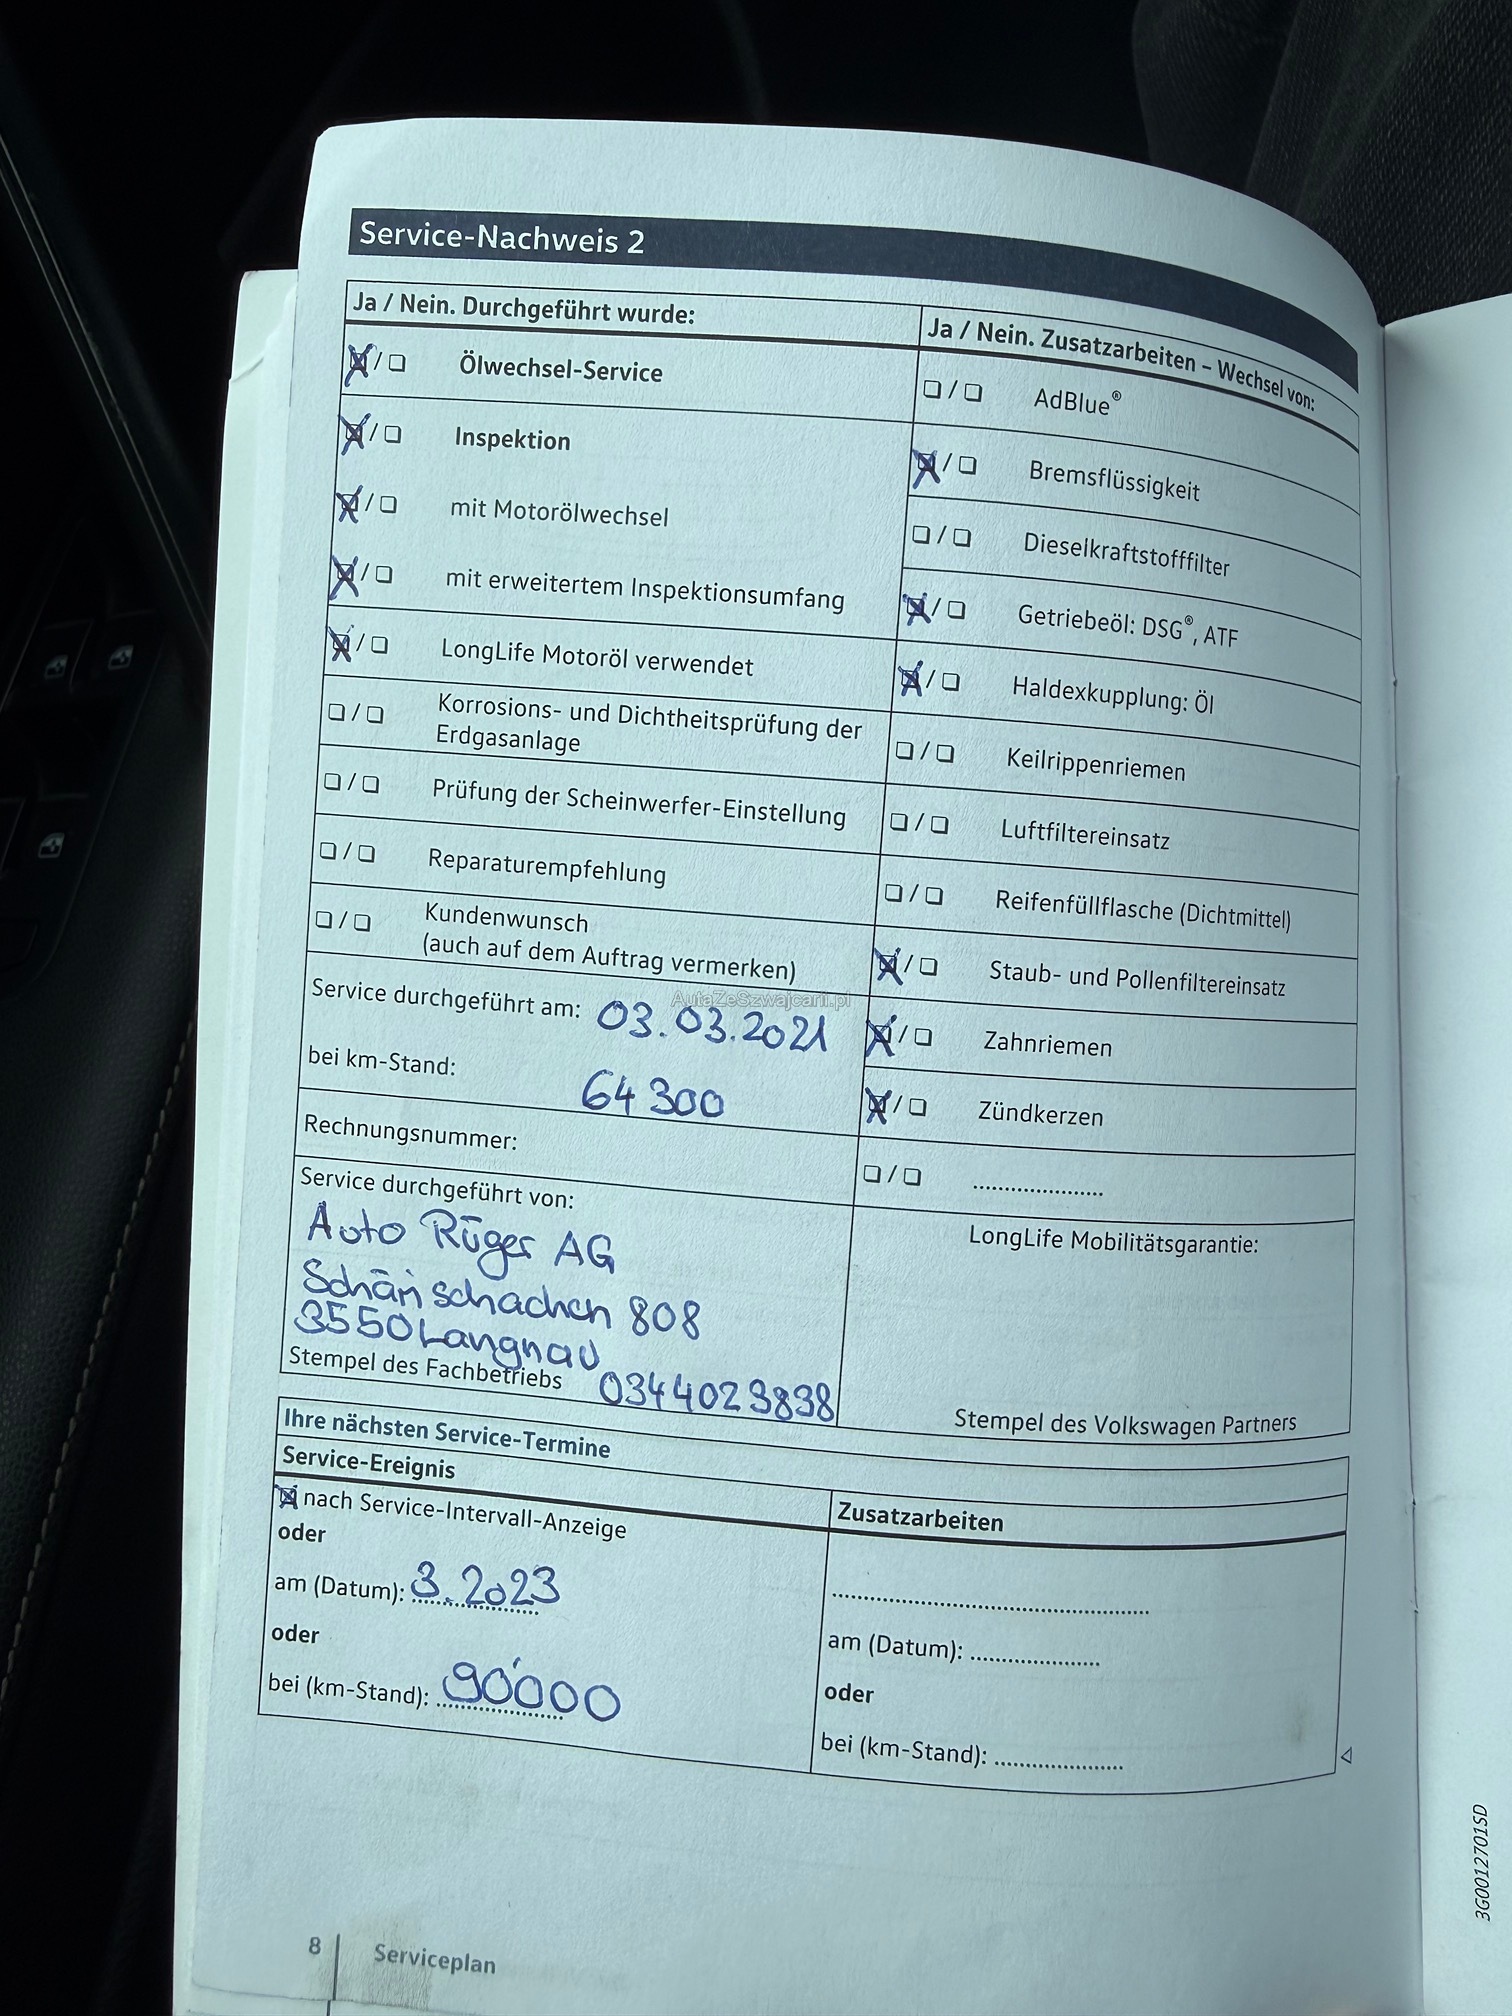 Service-Nachweis 2
Ja / Nein. Durchgeführt wurde:
☒ / ❏ Ölwechsel-Service
☒ / ❏ Inspektion
☒ / ❏ mit Motorölwechsel
☒ / ❏ mit erweitertem Inspektionsumfang
☒ / ❏ LongLife Motoröl verwendet
❏ / ❏ Korrosions- und Dichtheitsprüfung der
Erdgasanlage
❏ / ❏ Prüfung der Scheinwerfer-Einstellung
❏ / ❏ Reparaturempfehlung
❏ / ❏ Kundenwunsch
(auch auf dem Auftrag vermerken)
Service durchgeführt am: 03.03.2021
bei km-Stand: 64 300
Rechnungsnummer:
Service durchgeführt von:
Auto Rüger AG
Schärischachen 808
3550 Langnau
Stempel des Fachbetriebs 0344023838
Ja / Nein. Zusatzarbeiten – Wechsel von:
❏ / ❏ AdBlue®
☒ / ❏ Bremsflüssigkeit
❏ / ❏ Dieselkraftstofffilter
☒ / ❏ Getriebeöl: DSG®, ATF
☒ / ❏ Haldexkupplung: Öl
❏ / ❏ Keilrippenriemen
❏ / ❏ Luftfiltereinsatz
❏ / ❏ Reifenfüllflasche (Dichtmittel)
☒ / ❏ Staub- und Pollenfiltereinsatz
☒ / ❏ Zahnriemen
☒ / ❏ Zündkerzen
❏ / ❏ ......................
LongLife Mobilitätsgarantie:
Stempel des Volkswagen Partners
AutaZeSzwajcarii.pl
Ihre nächsten Service-Termine
Service-Ereignis
☒ nach Service-Intervall-Anzeige
oder
am (Datum): 3.2023
oder
bei (km-Stand): 90'000
Zusatzarbeiten
......................................................
am (Datum): ......................
oder
bei (km-Stand): ......................
8 Serviceplan
3G0012701SD